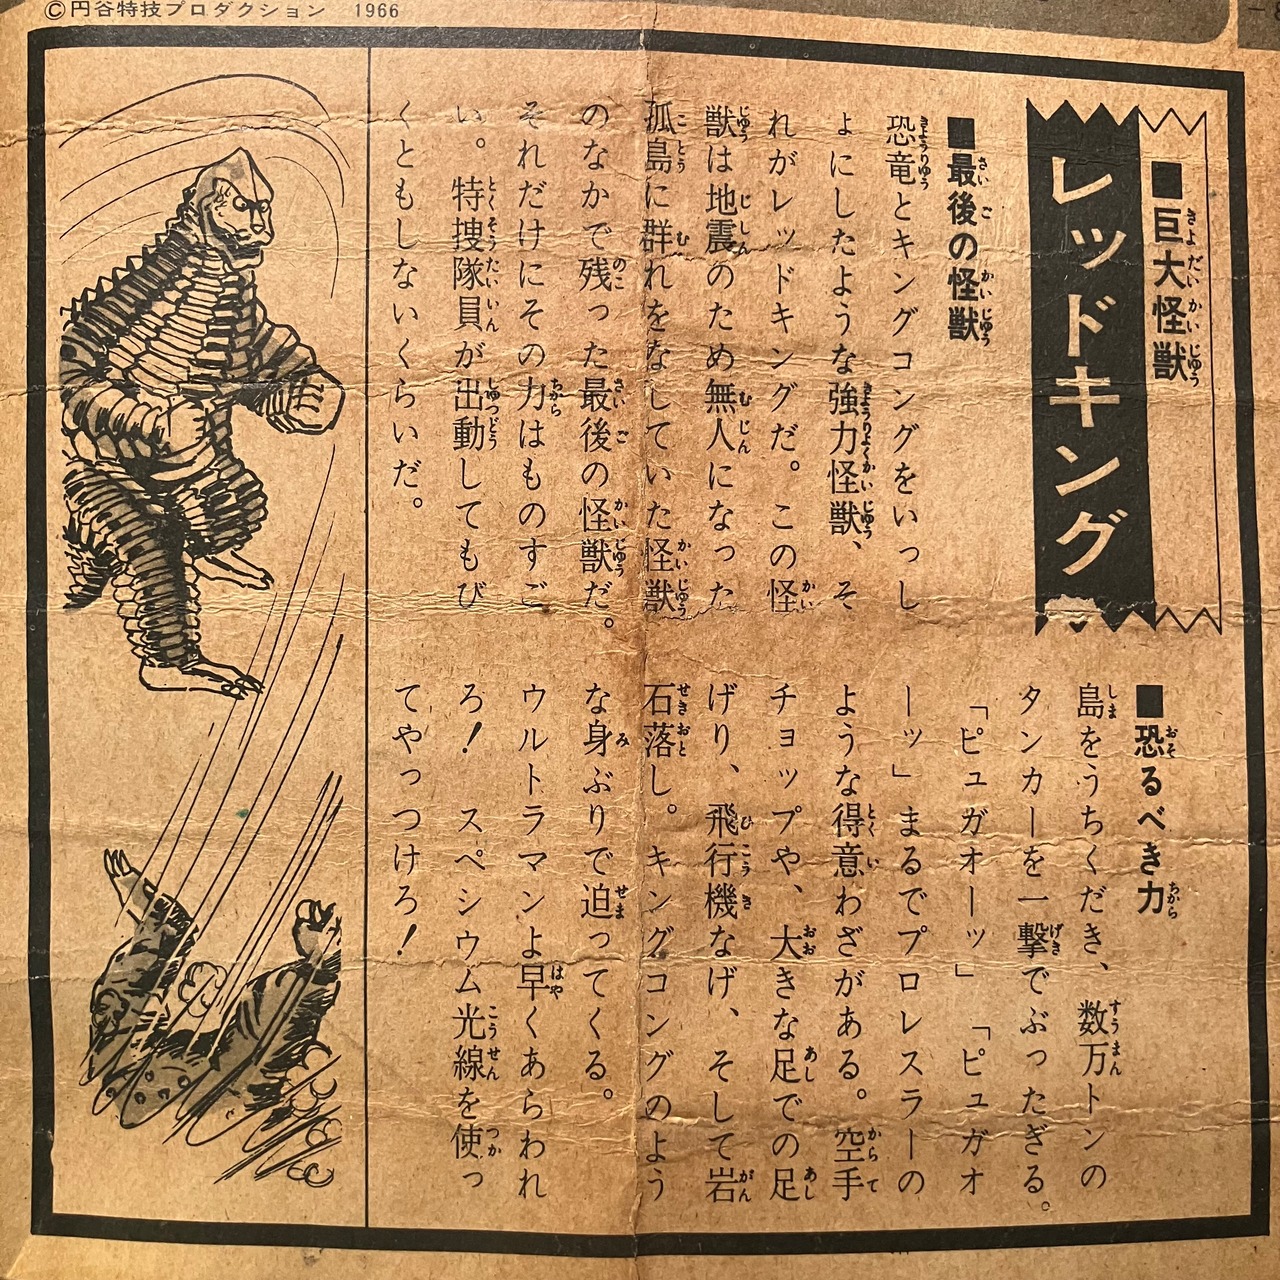 ©円谷特技プロダクション 1966
■巨大怪獣
レッドキング
■最後の怪獣
恐竜とキングコングをいっし
ょにしたような強力怪獣、そ
れがレッドキングだ。この怪
獣は地震のため無人になった
孤島に群れをなしていた怪獣
のなかで残った最後の怪獣だ。
それだけにその力はものすご
い。特捜隊員が出動してもび
くともしないくらいだ。
■恐るべき力
島をうちくだき、数万トンの
タンカーを一撃でぶったぎる。
「ピュガオーッ」「ピュガオ
ーッ」まるでプロレスラーの
ような得意わざがある。空手
チョップや、大きな足での足
げり、飛行機なげ、そして岩
石落し。キングコングのよう
な身ぶりで迫ってくる。
ウルトラマンよ早くあらわれ
ろ！スペシウム光線を使っ
てやっつけろ！